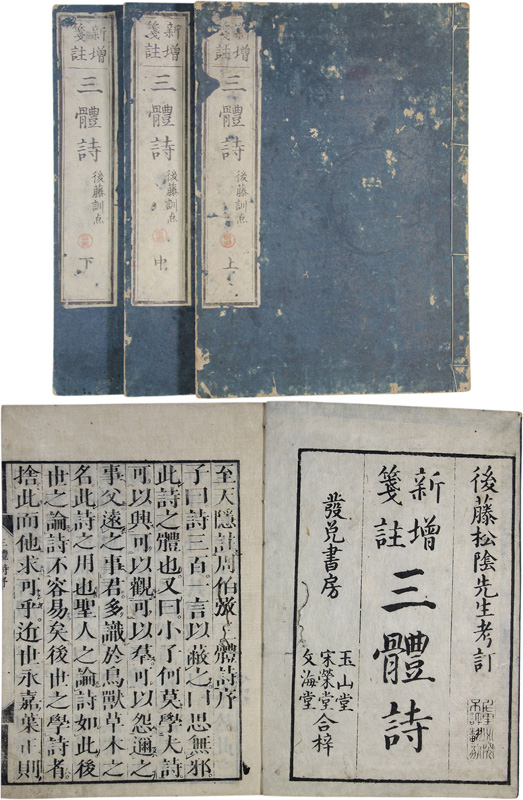 新增
箋註
三體詩
後藤訓点
上
新增
箋註
三體詩
後藤訓点
中
新增
箋註
三體詩
後藤訓点
下
後藤松陰先生考訂
新增
箋註
三體詩
發兌書房
玉山堂
宋榮堂
文海堂
合梓
至天隱註周伯體詩序
子曰詩三百一言以蔽之曰思無邪
此詩之體也又曰小子何莫學夫詩
可以興可以觀可以羣可以怨邇之
事父遠之事君多識於鳥獸草木之
名此詩之用也聖人之論詩如此後
世之論詩不容易矣後世之學詩者
捨此而他求可乎近世永嘉葉正則
三體詩序